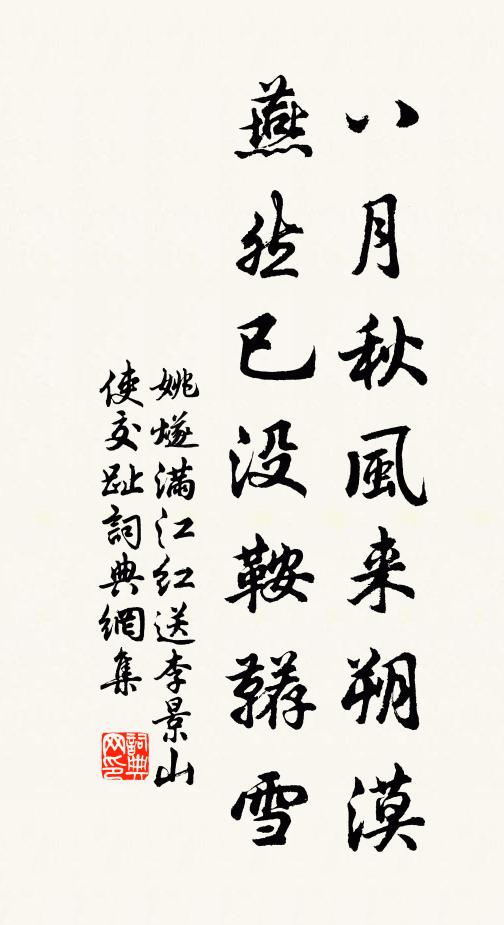 八月秋風来朔漠
燕然已没鞍韉雪
姚燧滿江紅送李景山
使交趾詞典網集
詞典网印